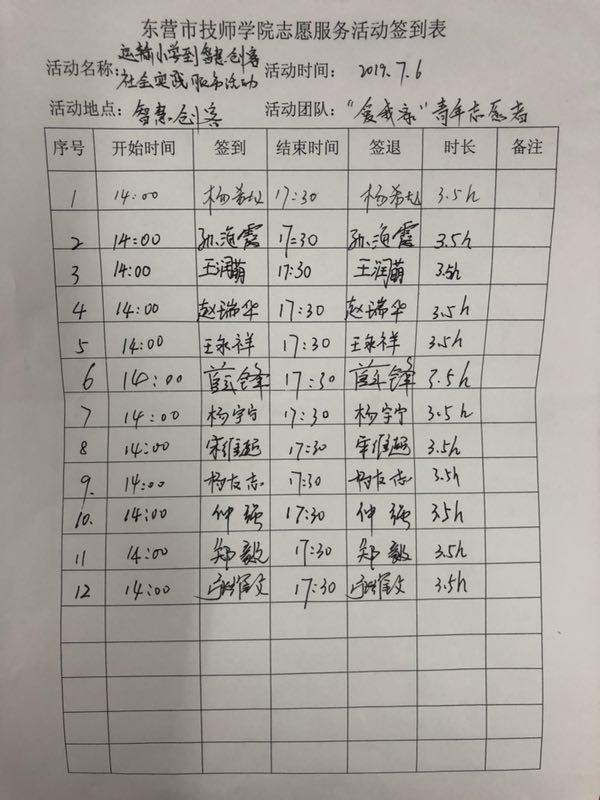 东营市技师学院志愿服务活动签到表
活动名称：运输小学到智慧创客社会实践服务活动 活动时间： 2019.7.6
活动地点：智慧创客 活动团队：“爱咸客”青年志愿者
序号 开始时间 签到 结束时间 签退 时长 备注
1 14:00 杨希 17:30 杨希 3.5h
2 14:00 孙海霞 17:30 孙海霞 3.5h
3 14:00 王润萌 17:30 王润萌 3.5h
4 14:00 赵瑞华 17:30 赵瑞华 3.5h
5 14:00 王永祥 17:30 王永祥 3.5h
6 14:00 17:30 3.5h
7 14:00 杨宇宁 17:30 杨宇宁 3.5h
8 14:00 17:30 3.5h
9. 14:00 杨友志 17:30 杨友志 3.5h
10. 14:00 仲强 17:30 仲强 3.5h
11 14:00 郑毅 17:30 郑毅 3.5h
12 14:00 17:30 3.5h